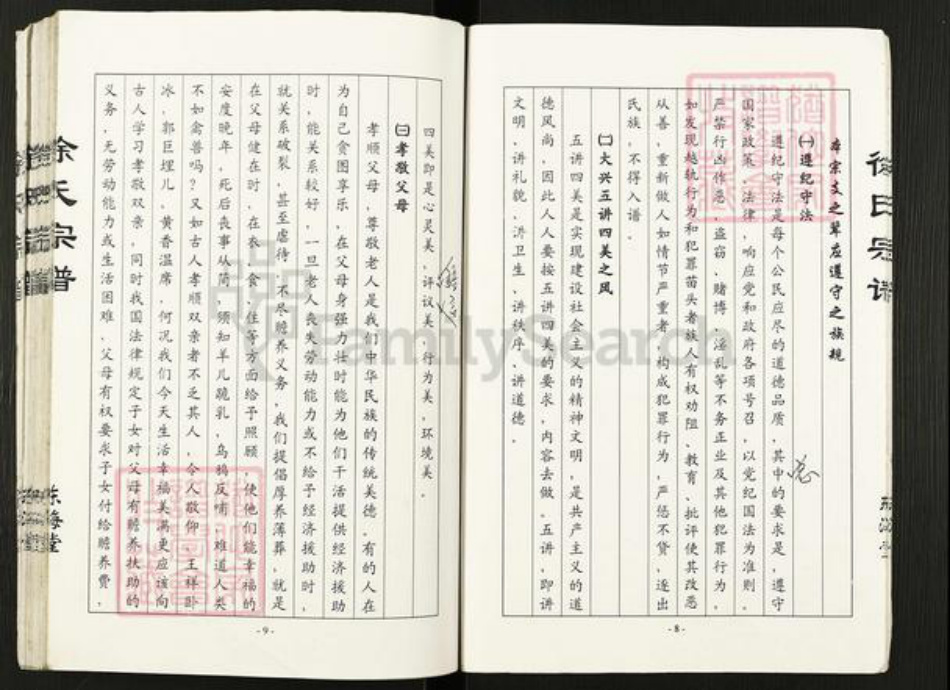 徐氏宗谱
东海堂
本宗支之辈应遵守之族规
㈠遵纪守法
遵纪守法是每个公民应尽的道德品质，其中的要求是，遵守
国家政策、法律，响应党和政府各项号召，以党纪国法为准则。
严禁行凶作恶，盗窃、赌博、淫乱等不务正业及其他犯罪行为，
如发现越轨行为和犯罪苗头者族人有权劝阻、教育、批评使其改恶
从善，重新做人如情节严重者，构成犯罪行为，严惩不贷，逐出
氏族，不得入谱。
㈡大兴五讲四美之风
五讲四美是实现建设社会主义的精神文明，是共产主义的道
德风尚，因此人人要按五讲四美的要求，内容去做。五讲，即讲
文明，讲礼貌，讲卫生、讲秩序、讲道德。
-8-
四美即是心灵美，评议美，行为美，环境美。
㈢孝敬父母
孝顺父母，尊敬老人是我们中华民族的传统美德。有的人在
为自己贪图享乐，在父母身强力壮时能为他们干活提供经济援助
时，能关系较好，一旦老人丧失劳动能力或不给予经济援助时，
就关系破裂，甚至虐待，不尽赡养义务，我们提倡厚养薄葬，就是
在父母健在时，在衣、食、住等方面给予照顾，使他们能幸福的
安度晚年，死后丧事从简，须知羊儿跪乳，乌鸦反哺，难道人类
不如禽兽吗？又如古人孝顺双亲者不乏其人，令人敬仰，王祥卧
冰，郭巨埋儿，黄香温席，何况我们今天生活幸福美满更应该向
古人学习孝敬双亲，同时我国法律规定子女对父母有赡养扶助的
义务，无劳动能力或生活困难，父母有权要求子女付给赡养费，
-9-
徐氏宗谱
东海堂
FamilySearch